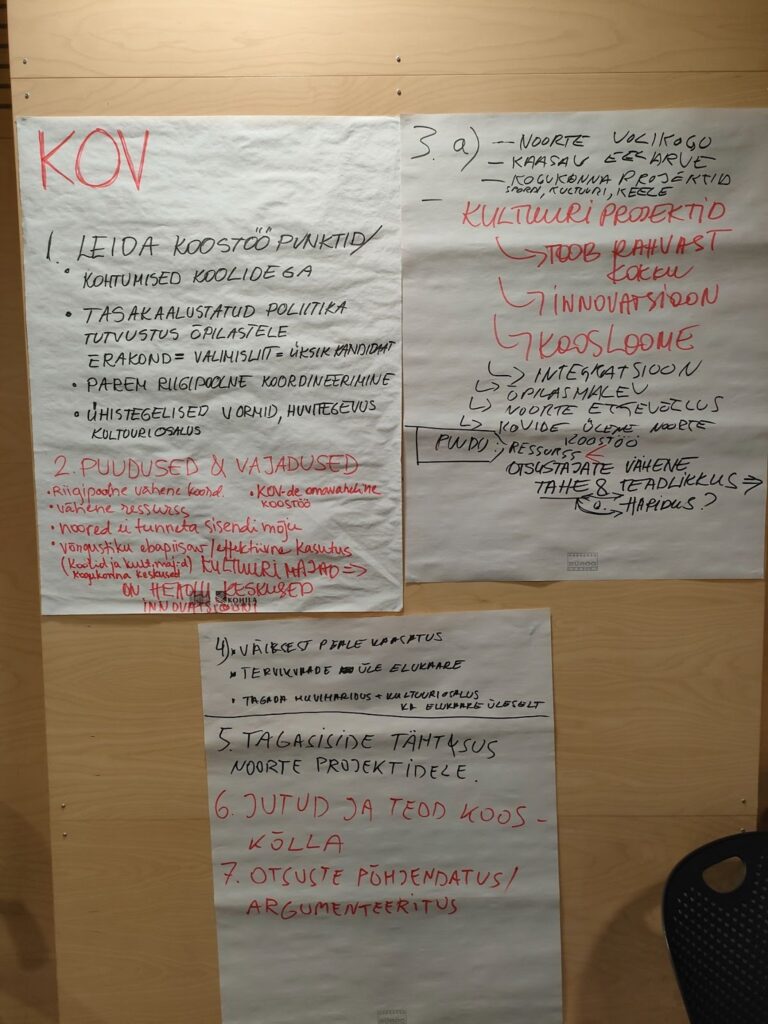 KOV
1. LEIDA KOOSTÖÖ PUNKTID/
• KOHTUMISED KOOLIDEGA
• TASAKAALUSTATUD POLIITIKA
TUTVUSTUS ÕPILASTELE
ERAKOND = VALIMISLIIT = ÜKSIK KANDIDAAT
• PAREM RIIGIPOOLNE KOORDINEERIMINE
• ÜHISTEGELISED VORMID, HUVITEGEVUS
KULTUURIOSALUS
2. PUUDUSED & VAJADUSED
• Riigipoolne vähene koord.
• vähene ressurss
• KOV-de omavaheline
KOOSTÖÖ
• noored ei tunneta sisendi mõju
• võrgustiku ebapiisav/effektiivne kasutus
(Koolid ja kult.maj-d)
Kogukonna keskused
KULTUURIMAJAD =>
ON HEAD KESKUSED
INNOVATSIOONI
KOHILA
3. a) — NOORTE VOLIKOGU
— KAASAV EELARVE
— KOGUKONNA PROJEKTID
SPORDI, KULTUURI, KEELE
— KULTUURI PROJEKTID
TOOB RAHVAST
KOKKU
INNOVATSIOON
KOOSLOOME
INTEGRATSIOON
ÕPILASMALEV
NOORTE ETTEVÕTLUS
KOVIDE ÜLENE NOORTE
KOOSTÖÖ
PUUDU: RESSURSS
OTSUSTAJATE VÄHENE
TAHE & TEADLIKKUS =>
HARIDUS?
4) • VÄIKSEST PEALE KAASATUS
• TERVIKVAADE ÜLE ELUKAARE
• TAGADA HUVIHARIDUS + KULTUURIOSALUS
KA ELUKAARE ÜLESELT
5. TAGASISIDE TÄHTSUS
NOORTE PROJEKTIDELE.
6. JUTUD JA TEOD KOOS-
KÕLLA
7. OTSUSTE PÕHJENDATUS/
ARGUMENTEERITUS